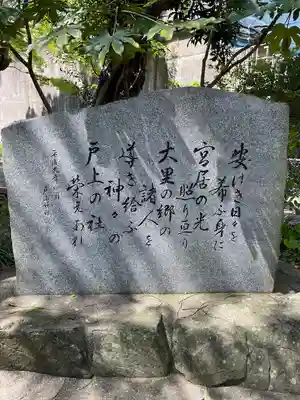 安けき日々を
希ふ身に
宮居の光
照り亘り
大里の郷の
諸人を
導き給ふ
神々の
戸上の社
栄光あれ
平成九年